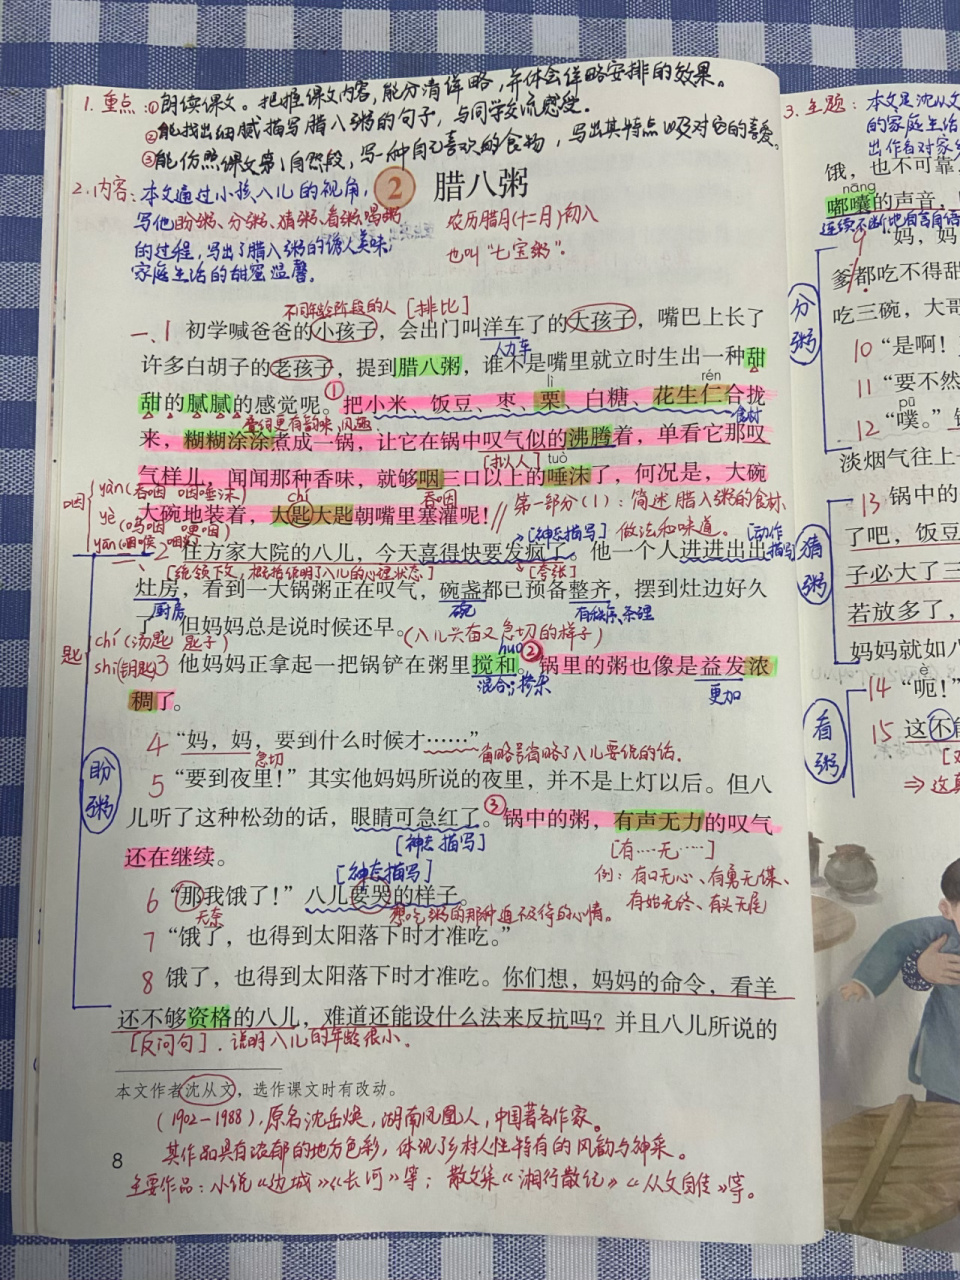 1. 重点：①朗读课文。把握课文内容，能分清详略，并体会详略安排的效果。
②能找出细腻描写腊八粥的句子，与同学交流感受。
③能仿照课文第1自然段，写一种自己喜欢的食物，写出其特点以及对它的喜爱。
2. 内容：本文通过小孩八儿的视角，
写他盼粥、分粥、猜粥、看粥、喝粥
的过程，写出了腊八粥的诱人美味，
家庭生活的甜蜜温馨。
2 腊八粥
农历腊月(十二月)初八
也叫“七宝粥”。
不同年龄阶段的人 [排比]
一、1 初学喊爸爸的小孩子，会出门叫洋车了的大孩子，嘴巴上长了
人力车
许多白胡子的老孩子，提到腊八粥，谁不是嘴里就立时生出一种甜
① lì rén
甜的腻腻的感觉呢。把小米、饭豆、枣、栗、白糖、花生仁合拢
食材
来，糊糊涂涂煮成一锅，让它在锅中叹气似的沸腾着，单看它那叹
[拟人] tuò
气样儿，闻闻那种香味，就够咽三口以上的唾沫了，何况是，大碗
咽 yàn(吞咽 咽唾沫)
yè(呜咽 哽咽)
yān(咽喉 咽炎)
chí 吞咽
大碗地装着，大匙大匙朝嘴里塞灌呢！
第一部分(1)：简述腊八粥的食材、
做法和味道。
[神态描写] [动作描写]
二、2 住方家大院的八儿，今天喜得快要发疯了。他一个人进进出出
[统领下文，概括说明了八儿的心理状态] [夸张]
灶房，看到一大锅粥正在叹气，碗盏都已预备整齐，摆到灶边好久
厨房 碗 有秩序、条理
了，但妈妈总是说时候还早。(八儿兴奋又急切的样子)
匙 chí(汤匙 匙子)
shi(钥匙)
huo ②
3 他妈妈正拿起一把锅铲在粥里搅和。锅里的粥也像是益发浓
混合；掺杂 更加
稠了。
盼粥
4 “妈，妈，要到什么时候才……”
急切 省略号省略了八儿要说的话。
5 “要到夜里！”其实他妈妈所说的夜里，并不是上灯以后。但八
儿听了这种松劲的话，眼睛可急红了。③锅中的粥，有声无力的叹气
[神态描写] [有……无……]
还在继续。
例：有口无心、有勇无谋、
有始无终、有头无尾
[神态描写]
6 “那我饿了！”八儿要哭的样子。
无奈 想吃粥的那种迫不及待的心情。
7 “饿了，也得到太阳落下时才准吃。”
8 饿了，也得到太阳落下时才准吃。你们想，妈妈的命令，看羊
还不够资格的八儿，难道还能设什么法来反抗吗？并且八儿所说的
[反问句]．说明八儿的年龄很小。
本文作者沈从文，选作课文时有改动。
(1902—1988)，原名沈岳焕，湖南凤凰人，中国著名作家。
其作品具有浓郁的地方色彩，体现了乡村人性特有的风韵与神采。
主要作品：小说《边城》《长河》等；散文集《湘行散记》《从文自传》等。
8
3. 主题：本文是沈从文
的家庭生活
出作者对家
饿，也不可靠
nāng
嘟囔的声音，
连续不断地自言自语
9 “妈，妈
爹都吃不得甜
吃三碗，大哥
分粥
10 “是啊！
11 “要不然
pū
12 “噗。”锅
淡烟气往上
13 锅中的
了吧，饭豆
猜粥
子必大了三
若放多了，
妈妈就如八
è
14 “呃！”
看粥
15 这不能
⇒这真